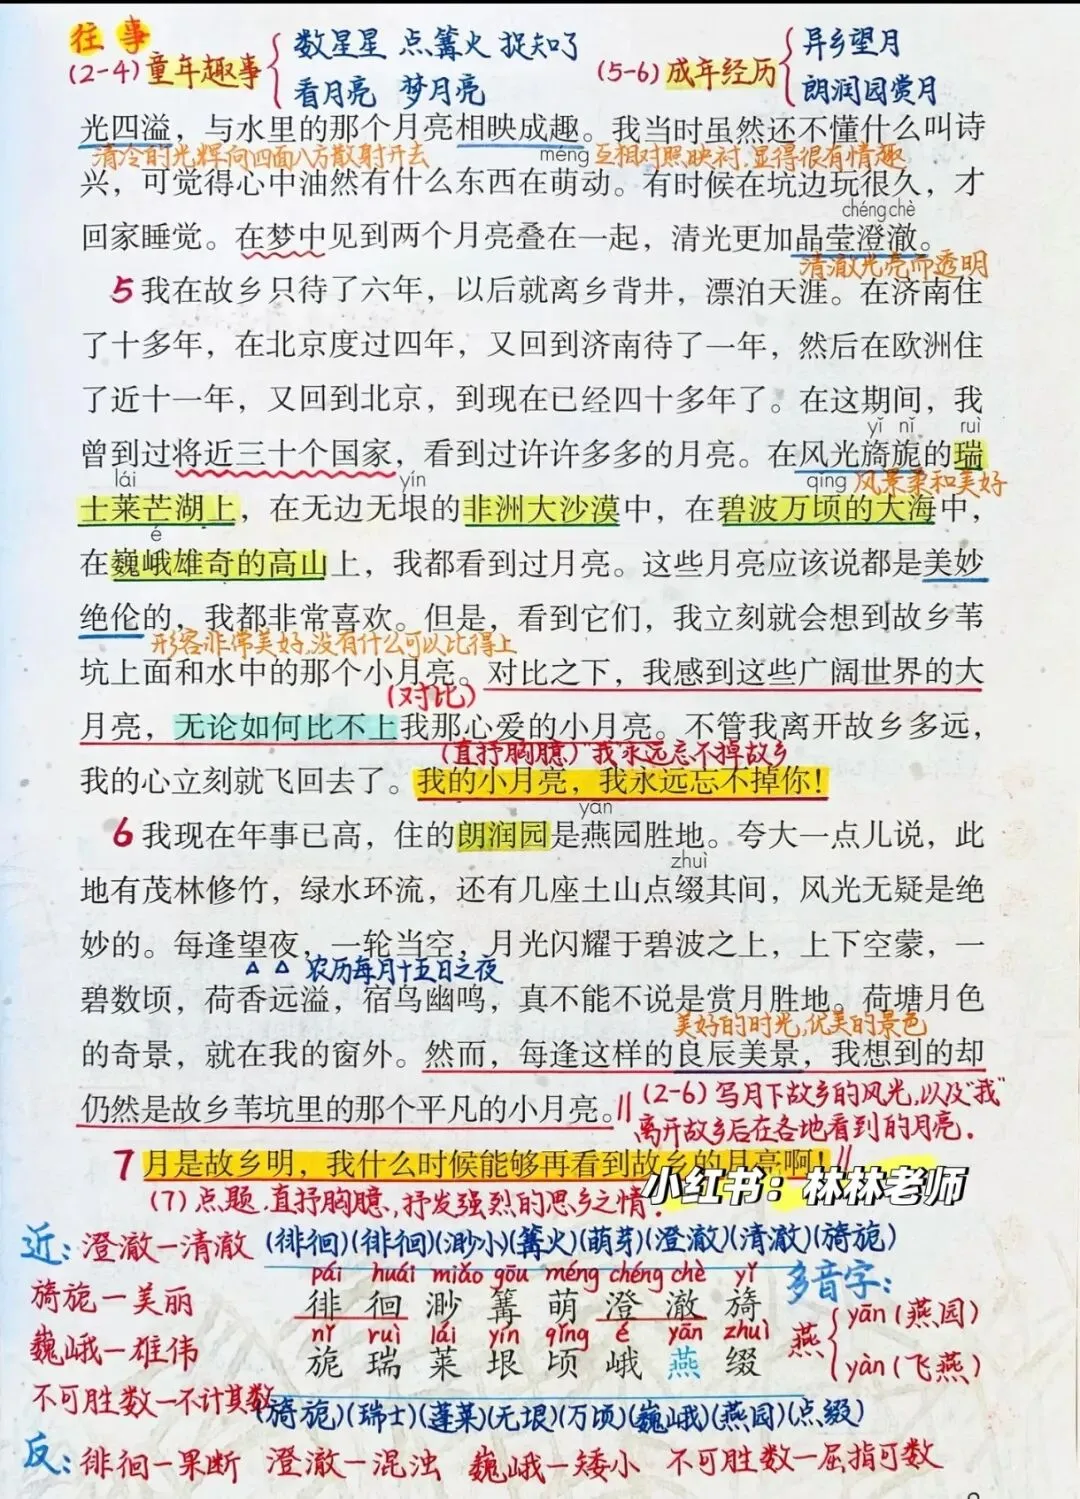 往事
(2-4)童年趣事 数星星 点篝火 捉知了
看月亮 梦月亮
(5-6)成年经历 异乡望月
朗润园赏月
光四溢，与水里的那个月亮相映成趣。我当时虽然还不懂什么叫诗
清冷的光辉向四面八方散射开去 méng 互相对照映衬,显得很有情趣
兴，可觉得心中油然有什么东西在萌动。有时候在坑边玩很久，才
chéng chè
回家睡觉。在梦中见到两个月亮叠在一起，清光更加晶莹澄澈。
清澈光亮而透明
5 我在故乡只待了六年，以后就离乡背井，漂泊天涯。在济南住
了十多年，在北京度过四年，又回到济南待了一年，然后在欧洲住
了近十一年，又回到北京，到现在已经四十多年了。在这期间，我
yǐ nǐ ruì
曾到过将近三十个国家，看到过许许多多的月亮。在风光旖旎的瑞
lái yín qǐng 风景柔和美好
士莱芒湖上，在无边无垠的非洲大沙漠中，在碧波万顷的大海中，
é
在巍峨雄奇的高山上，我都看到过月亮。这些月亮应该说都是美妙
绝伦的，我都非常喜欢。但是，看到它们，我立刻就会想到故乡苇
形容非常美好,没有什么可以比得上
坑上面和水中的那个小月亮。对比之下，我感到这些广阔世界的大
(对比)
月亮，无论如何比不上我那心爱的小月亮。不管我离开故乡多远，
(直抒胸臆)"我永远忘不掉故乡
我的心立刻就飞回去了。我的小月亮，我永远忘不掉你！
yān
6 我现在年事已高，住的朗润园是燕园胜地。夸大一点儿说，此
zhuì
地有茂林修竹，绿水环流，还有几座土山点缀其间，风光无疑是绝
妙的。每逢望夜，一轮当空，月光闪耀于碧波之上，上下空蒙，一
农历每月十五日之夜
碧数顷，荷香远溢，宿鸟幽鸣，真不能不说是赏月胜地。荷塘月色
美好的时光,优美的景色
的奇景，就在我的窗外。然而，每逢这样的良辰美景，我想到的却
仍然是故乡苇坑里的那个平凡的小月亮。
(2-6)写月下故乡的风光,以及"我"
离开故乡后在各地看到的月亮.
7 月是故乡明，我什么时候能够再看到故乡的月亮啊！
小红书：林林老师
(7)点题.直抒胸臆,抒发强烈的思乡之情.
近: 澄澈—清澈 (徘徊)(徘徊)(渺小)(篝火)(萌芽)(澄澈)(清澈)(旖旎)
pái huái miǎo gōu méng chéng chè yǐ
旖旎—美丽 徘 徊 渺 篝 萌 澄 澈 旖
nǐ ruì lái yín qǐng é yān zhuì
巍峨—雄伟 旎 瑞 莱 垠 顷 峨 燕 缀
多音字:
燕 yān(燕园)
yàn(飞燕)
不可胜数—不计其数 (旖旎)(瑞士)(蓬莱)(无垠)(万顷)(巍峨)(燕园)(点缀)
反: 徘徊—果断 澄澈—混浊 巍峨—矮小 不可胜数—屈指可数